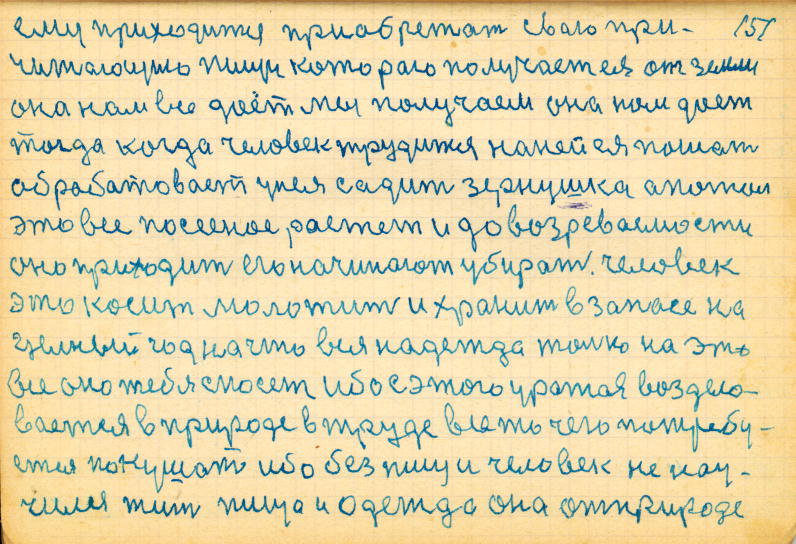 ему приходится приобретат сваю при- 151
читающую пищу котораю получается от земли
она нам все даёт мы получаем она нам дает
тогда когда человек трудится на ней ея пошат
обработовает у нея садит зернушка а потом
это все посееное растет и до возреваемости
оно приходит его начинают убират. человек
это косит молотит и хранит в запасе на
целный год на что вся надежда толко на это
все оно тебя спосет ибо с этого урожая возделο-
вается в природе в труде все то чего потребу-
ется покушат ибо без пищи человек не нау-
чился жит пища и одежда она от природе